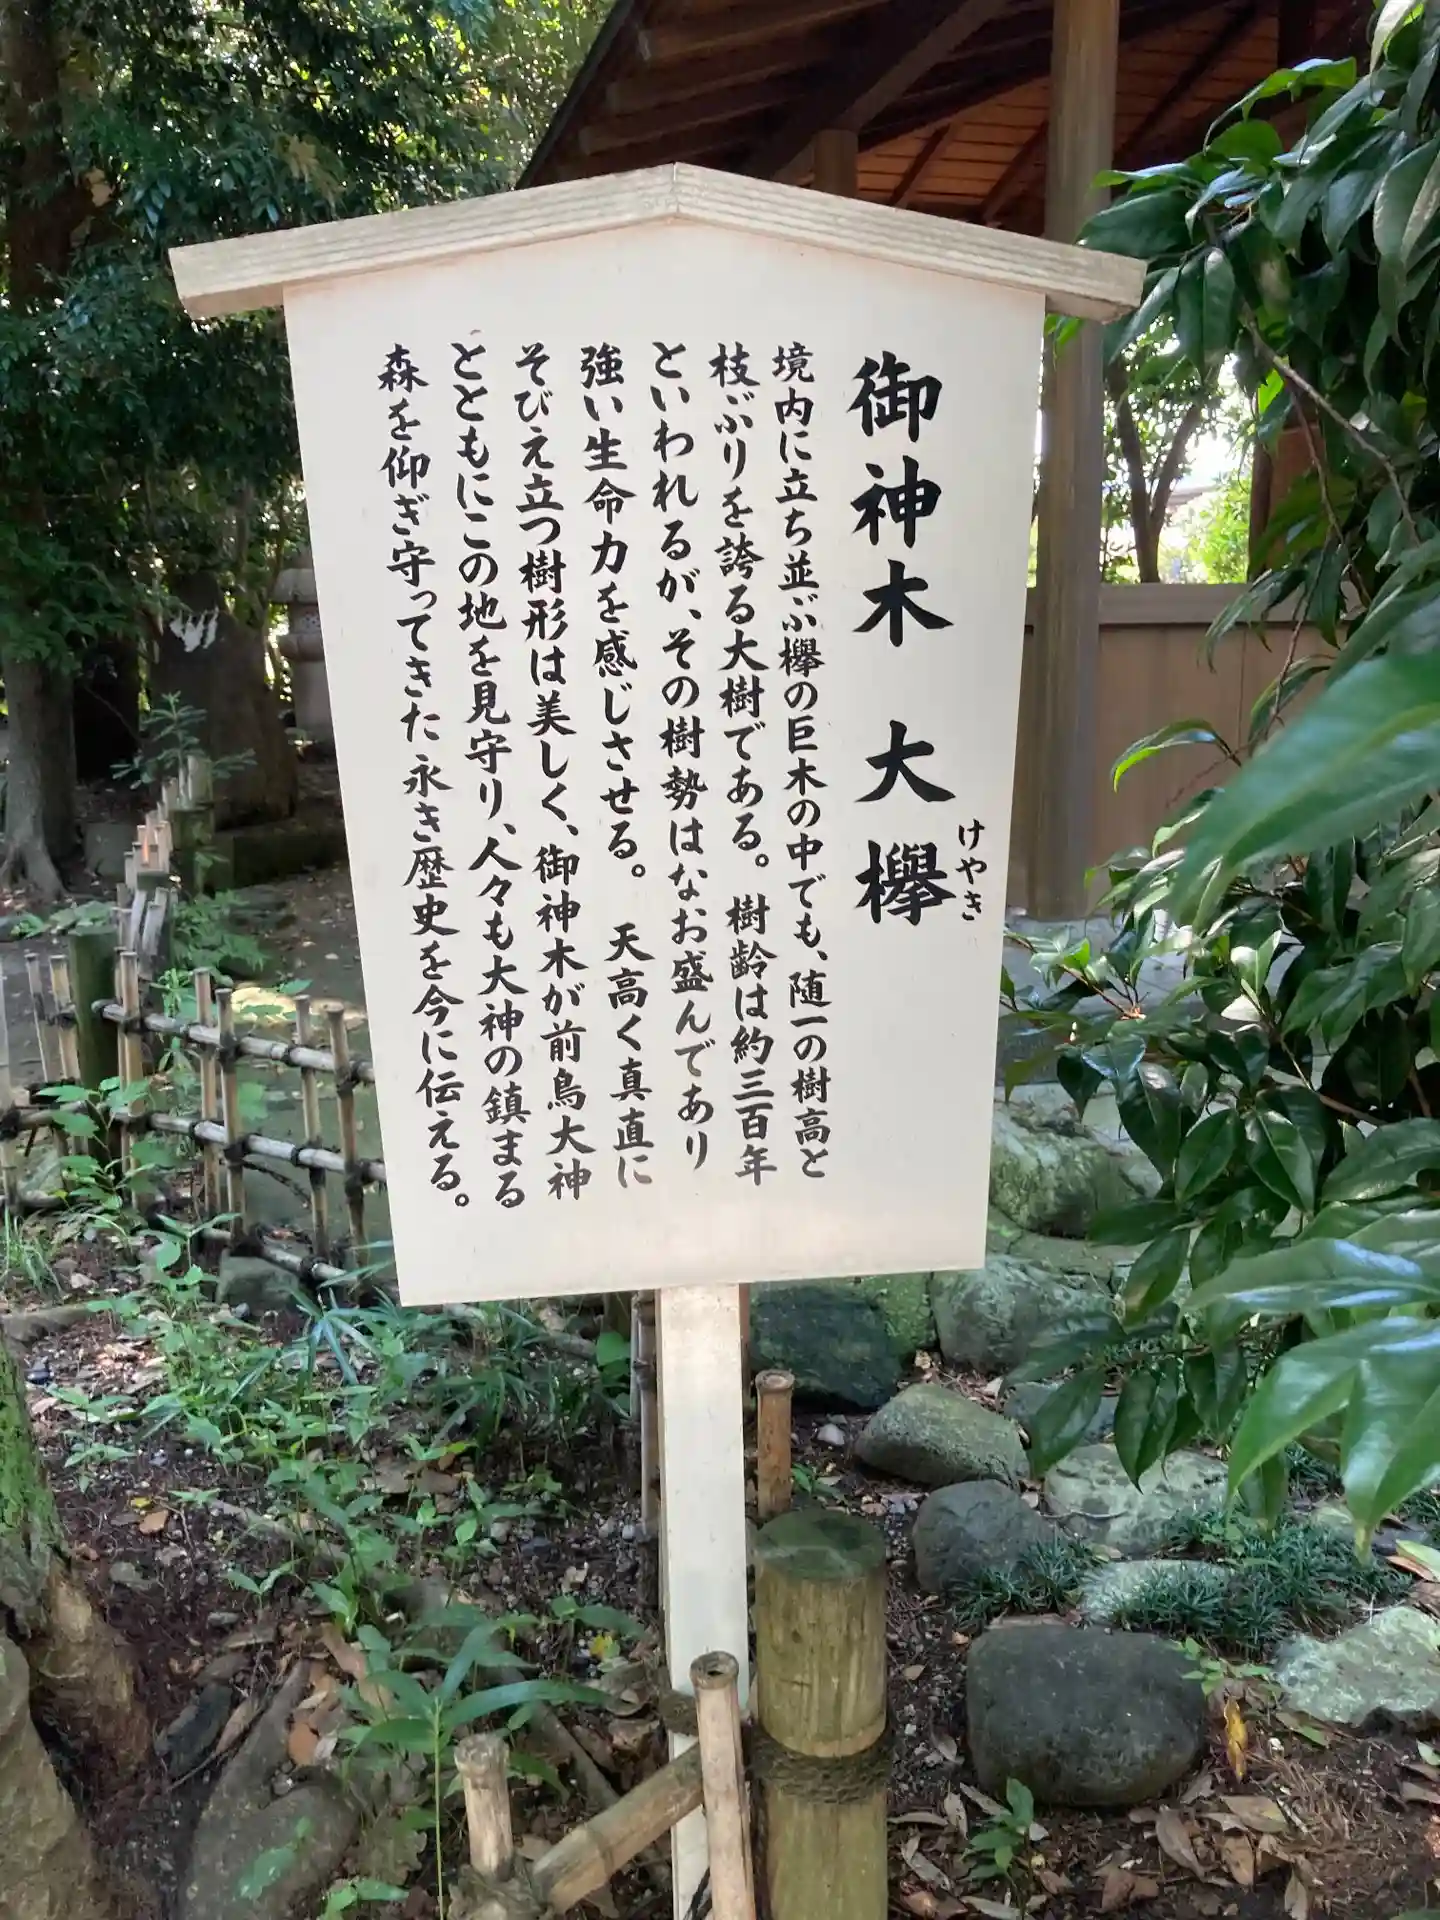 御神木 大欅
けやき
境内に立ち並ぶ欅の巨木の中でも、随一の樹高と
枝ぶりを誇る大樹である。樹齢は約三百年
といわれるが、その樹勢はなお盛んであり
強い生命力を感じさせる。 天高く真直に
そびえ立つ樹形は美しく、御神木が前鳥大神
とともにこの地を見守り、人々も大神の鎮まる
森を仰ぎ守ってきた永き歴史を今に伝える。